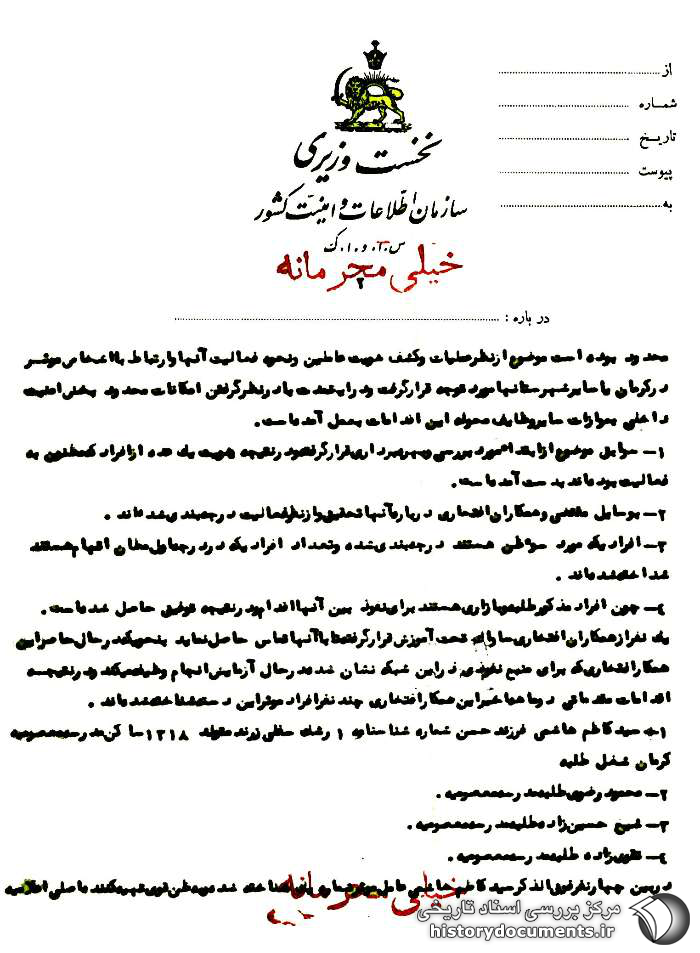 از
شماره
تاریخ
پیوست
به
نخست وزیری
سازمان اطلاعات و امنیت کشور
س.ا.و.ا.ک
خیلی محرمانه
۲
در باره :
محدود بوده است موضوع از نظر عملیات و کشف هویت عاملین و نحوه فعالیت آنها و ارتباط با اشخاص موثر
در کرمان یا سایر شهرستانها مورد توجه قرار گرفت و در این مدت با در نظر گرفتن امکانات محدود بخش امنیت
داخلی بموازات سایر وظایف محوله این اقدامات بعمل آمده است.
۱- سوابق موضوع از ابتدا مورد بررسی و بهره برداری قرار گرفته و در نتیجه هویت یک عده از افراد که مظنون به
فعالیت بوده اند بدست آمده است.
۲- بوسایل مقتضی و همکاران افتخاری درباره آنها تحقیق و از نظر فعالیت درجه بندی شده اند .
۳- افراد یکه مورد سوءظن هستند درجه بندی شده و تعداد افراد یکه در درجه اول مظان اتهام هستند
شناخته شده اند .
۴- چون افراد مذکور طلبه و بازاری هستند برای نفوذ بین آنها اقدام و در نتیجه توفیق حاصل شده است.
یک نفر از همکاران افتخاری ما تحت آموزش قرار گرفته تا با آنها تماس حاصل نماید بنحویکه در حال حاضر این
همکار افتخاری که برای منبع نفوذی در این شبکه نشان شده در حال آزمایش انجام وظیفه میکند و در نتیجه
اقدامات مقدماتی دو ماهه اخیر این همکار افتخاری چند نفر افراد موثر این دسته شناخته شده اند .
۱- سید کاظم هاشمی فرزند حسن شماره شناسنامه ۱ زرند متولد ۱۳۱۸ ساکن مدرسه معصومیه
کرمان شغل طلبه
۲- محمود رضوی طلبه مدرسه معصومیه .
۳- شیخ حسین زاده طلبه مدرسه معصومیه .
۴- تقوی زاده طلبه مدرسه معصومیه .
در بین چهار نفر فوق الذکر سید کاظم هاشمی عامل موثر شناخته شده و سوءظن قوی میکنند عامل اصلی
خیلی محرمانه
مرکز بررسی اسناد تاریخی
historydocuments.ir